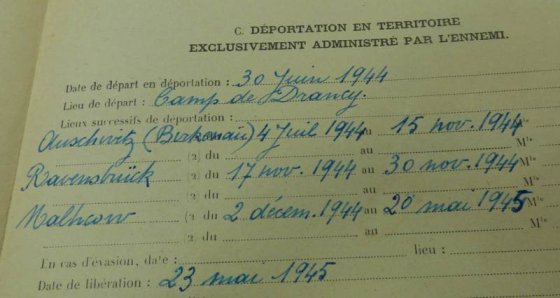 C. DÉPORTATION EN TERRITOIRE
EXCLUSIVEMENT ADMINISTRÉ PAR L'ENNEMI.
Date de départ en déportation : 30 Juin 1944
Lieu de départ : Camp de Drancy.
Lieux successifs de déportation :
Auschwitz (Birkenau) 4 Juil 1944 au 15 nov. 1944 Mle
Ravensbrück (2) du 17 nov. 1944 au 30 nov. 1944 Mle
Malhcow (2) du 2 décem. 1944 au 20 mai 1945 Mle
(2) du au Mle
En cas d'évasion, date : lieu :
Date de libération : 23 mai 1945